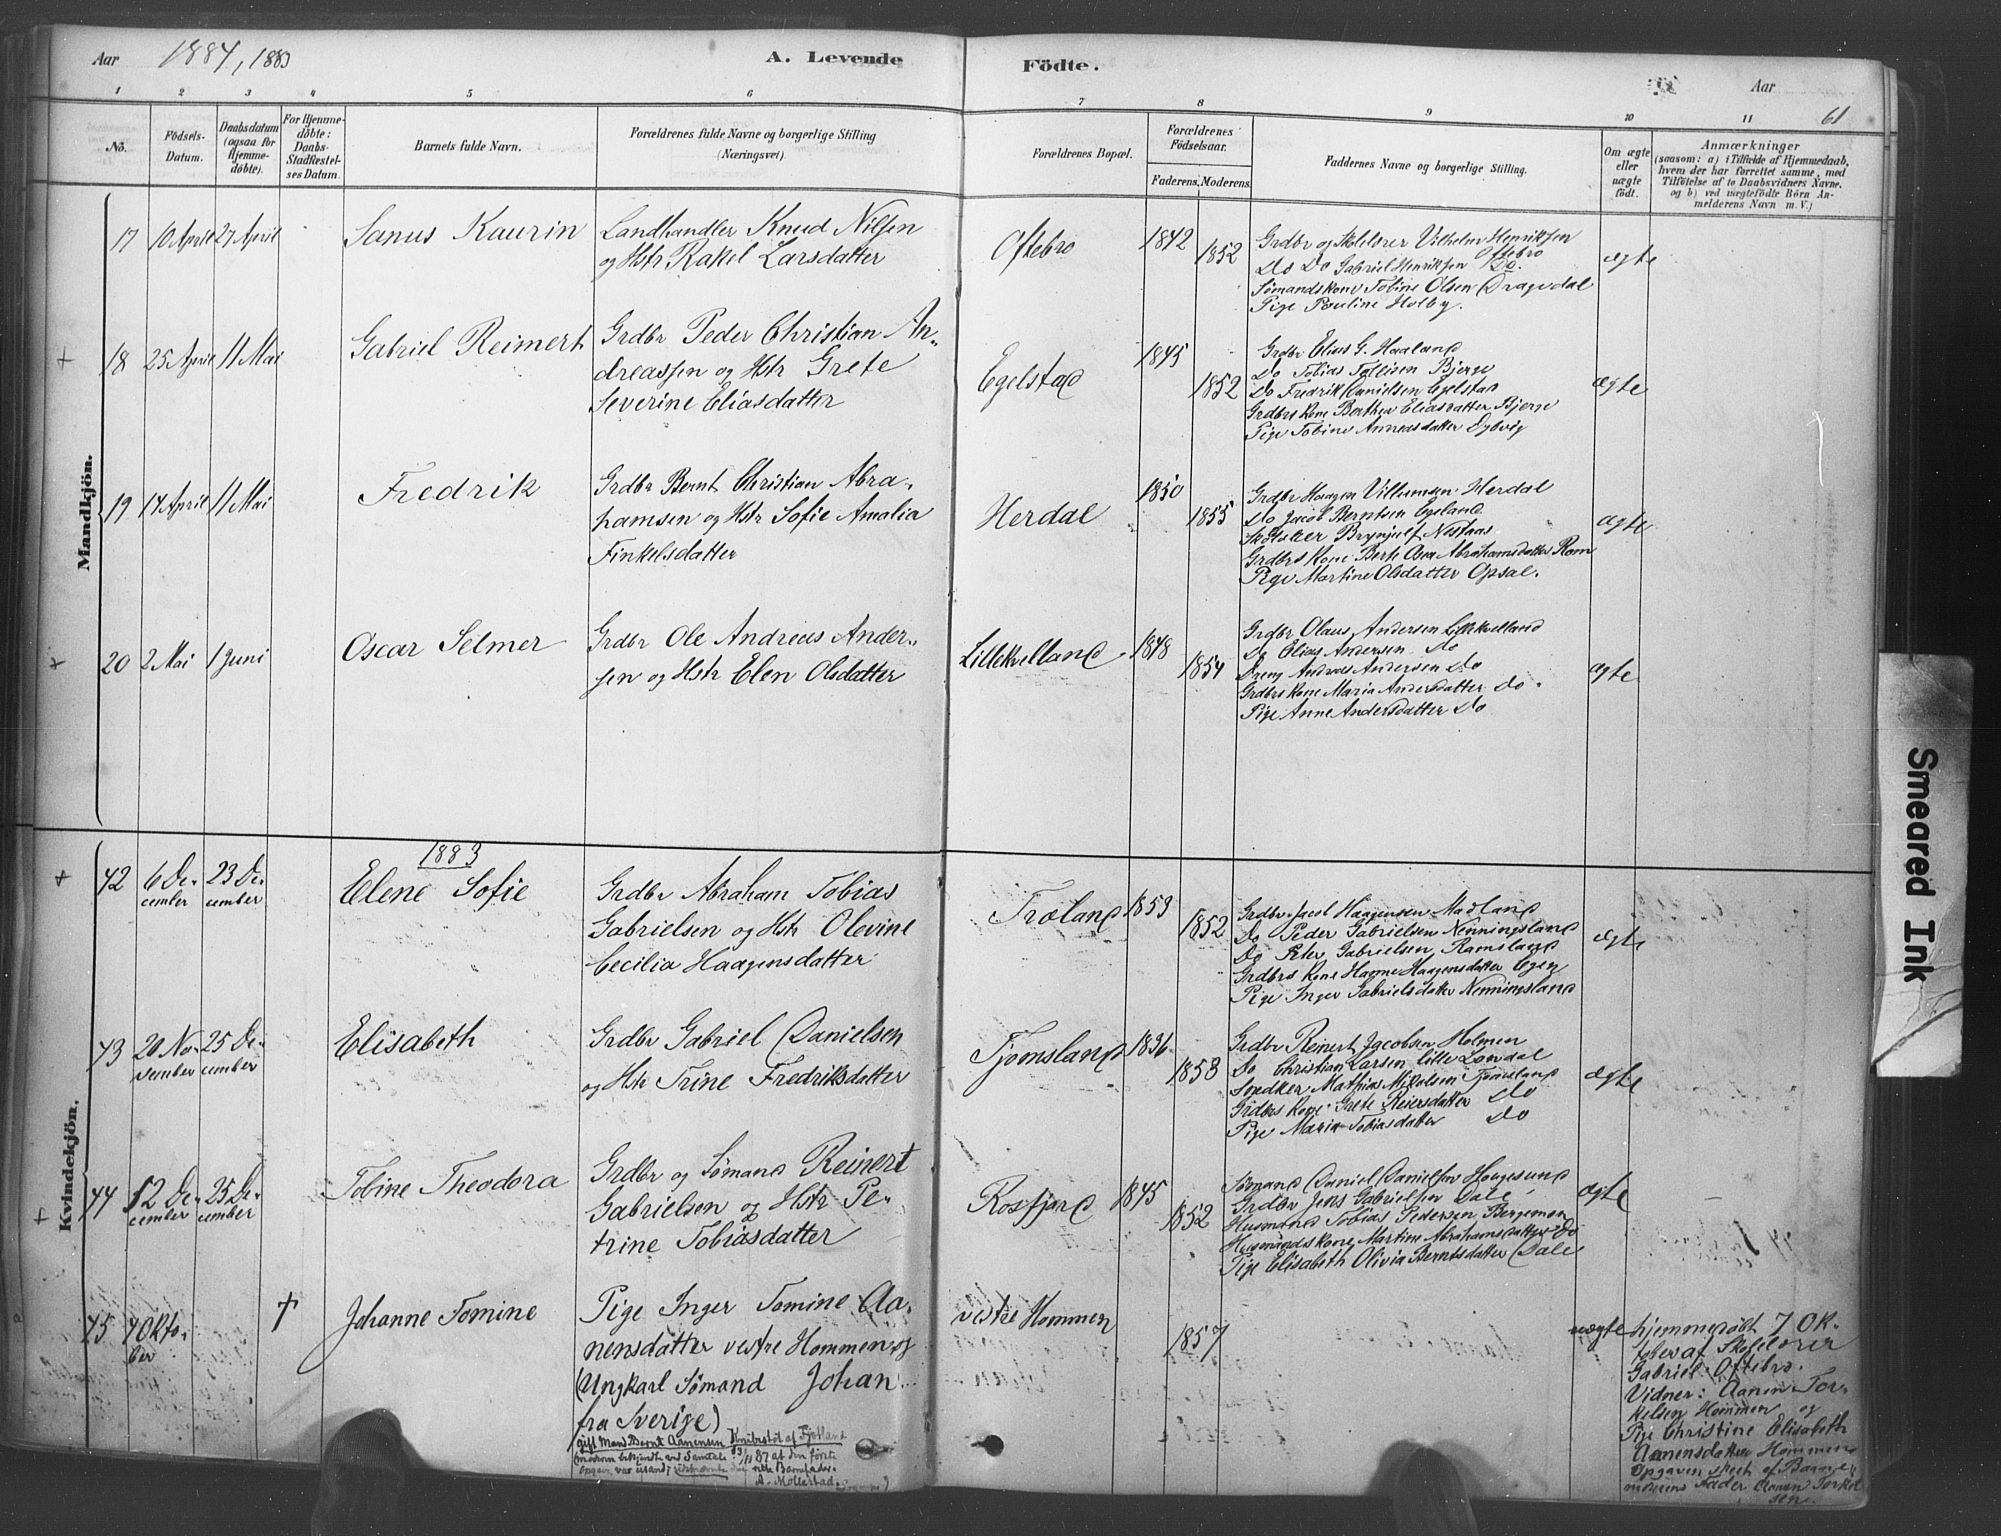 Aar 1884, 1883
A. Levende Födte.
Aar
61
1 2 3 4 5 6 7 8 9 10 11
No.
Födsels-Datum.
Daabsdatum (ogsaa for Hjemmedöbte).
For Hjemmedöbte: Daabs-Stadfæstelses Datum.
Barnets fulde Navn.
Forældrenes fulde Navne og borgerlige Stilling (Næringsvei).
Forældrenes Bopæl.
Forældrenes Födselsaar.
Faderens. Moderens.
Faddernes Navne og borgerlige Stilling.
Om ægte eller uægte födt.
Anmærkninger
(saasom: a) i Tilfælde af Hjemmedaab, hvem der har forrettet samme, med Tilföielse af to Daabsvidners Navne, og b) ved uægtefödte Börn Anmelderens Navn m. V.)
Mandkjön.
17 10 April 27 April
Sanus Kaurin
Landhandler Knud Nilsen
og Hstr Rakel Larsdatter
Oftebro
1842
1852
Grdbr og Skolelærer Vilhelm Henriksen
Oftebro
Do Do Gabriel Henriksen Do.
Sømandskone Tobine Olsen Dragedal
Pige Pauline Holby.
ægte
18 25 April 11 Mai
Gabriel Reimert
Grdbr Peder Christian An-
dreassen og Hstr Grete
Severine Eliasdatter
Egelstad
1845
1852
Grdbr Elias G. Haaland
Do Tobias Tollisen Bjerge
Do Fredrik Danielsen Egelstad
Grdbrs Kone Berthe Eliasdatter Bjerge
Pige Tobine Andreasdatter
ægte
19 14 April 11 Mai
Fredrik
Grdbr Bernt Christian Abra-
hamsen og Hstr Sofie Amalia
Finkelsdatter
Herdal
1850
1855
Grdbr Haagen Villumsen Herdal
Do Jacob Berntsen Egeland
Brynjulf
Grdbrs Kone Berte Abrahamsdatter Rom
Pige Martine Olsdatter Opsal.
ægte
20 2 Mai 1 Juni
Oscar Selmer
Grdbr Ole Andreas Ander-
sen og Hstr Elen Olsdatter
Lillekvelland
1848
1854
Grdbr Olaus Andersen Lillekvelland
Do Elias Andersen Do
Dreng Andreas Andersen Do
Grdbrs Kone Maria Andersdatter Do.
Pige Anne Andersdatter Do
ægte
Kvindekjön.
1883
42 6 De-
cember 23 De-
cember
Elene Sofie
Grdbr Abraham Tobias
Gabrielsen og Hstr Olevine
Cecilia Haagensdatter
Træland
1853
1852
Grdbr Jacob Haagensen Madland
Do Peder Gabrielsen Nenningsland
Do Peter Gabrielsen Ramsland
Grdbrs Kone Hanne Haagensdatter Egen
Pige Inger Gabrielsdatter Nenningsland
ægte
43 20 No-
vember 25 De-
cember
Elisabeth
Grdbr Gabriel Danielsen
og Hstr Trine Fredriksdatter
Tjomsland
1836
1853
Grdbr Reinert Jacobsen Holmen
Do Christian Larsen Lille Londal
Snedker Mathias Mikalsen Tjomsland
Grdbrs Kone Grete Reiersdatter Do
Pige Maria Tobiasdatter Do
ægte
44 12 De-
cember 25 De-
cember
Tobine Theodora
Grdbr og Sømand Reinert
Gabrielsen og Hstr Pe-
trine Tobiasdatter
Rosfjord
1845
1852
Sømand Daniel Danielsen Haugesund
Grdbr Jens Gabrielsen Dale
Husmand Tobias Pedersen Bergemoen
Husmandskone Martine Abrahamsdatter Do
Pige Elisabeth Olivia Berntsdatter Dale
ægte
45 7 Okto-
ber †
Johanne Tomine
Pige Inger Tomine Aa-
nensdatter vestre Hommen og
(Ungkarl Sømand Johan
fra Sverige)
gift Mand Bernt Aanensen Knibestøl af Fjotland
A. Møllestad.
vestre Hommen
1857
uægte
hjemmedøbt 7 Ok-
tober af Skolelærer
Gabriel Oftebro.
Vidner: Aanen Tor-
kelsen Hommen og
Pige Christine Elisabeth
Aanensdatter Hommen
Opgaven skeet af Barne-
moderens Fader Aanen Torkel-
sen.
Smeared Ink